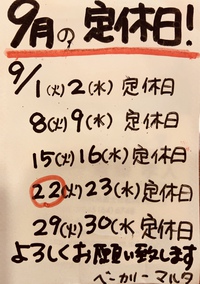 9月の定休日!
9/1(火)2(水)定休日
8(火)9(水)定休日
15(火)16(水)定休日
22(火)23(水)定休日
29(火)30(水定休日
よろしくお願い致します
ベーカリーマルタ